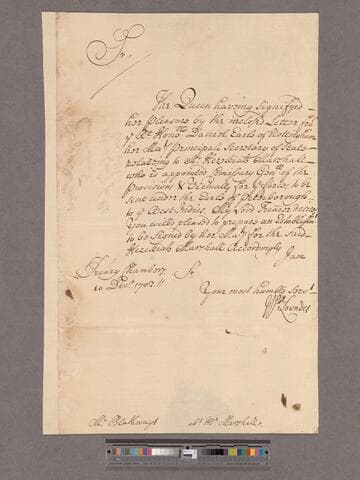 Sr.
The Queen having Signifyed
her pleasure by the inclosed Letter from
ye Rt. Honoble. Daniel Earle of Nottingham
her Mats. Principall Secretary of State
relating to Mr. Hezekiah Marshall
who is appointed Comissary Genll. of the
Provisions & Victualls for ye forces to be
sent under the Earle of Peterborough
to ye West Indies. My Lord Trearer desires
You will please to prepare an Establishmt.
to be Signed by her Maty. for the said
Hezekiah Marshall Accordingly
I am
Trea[su]ry Chambers, Sr.
10 Decr. 1702 Your most humble Servt.
Wm. Lowndes
Mr. Blathwayt abt. Mr. Marshall.